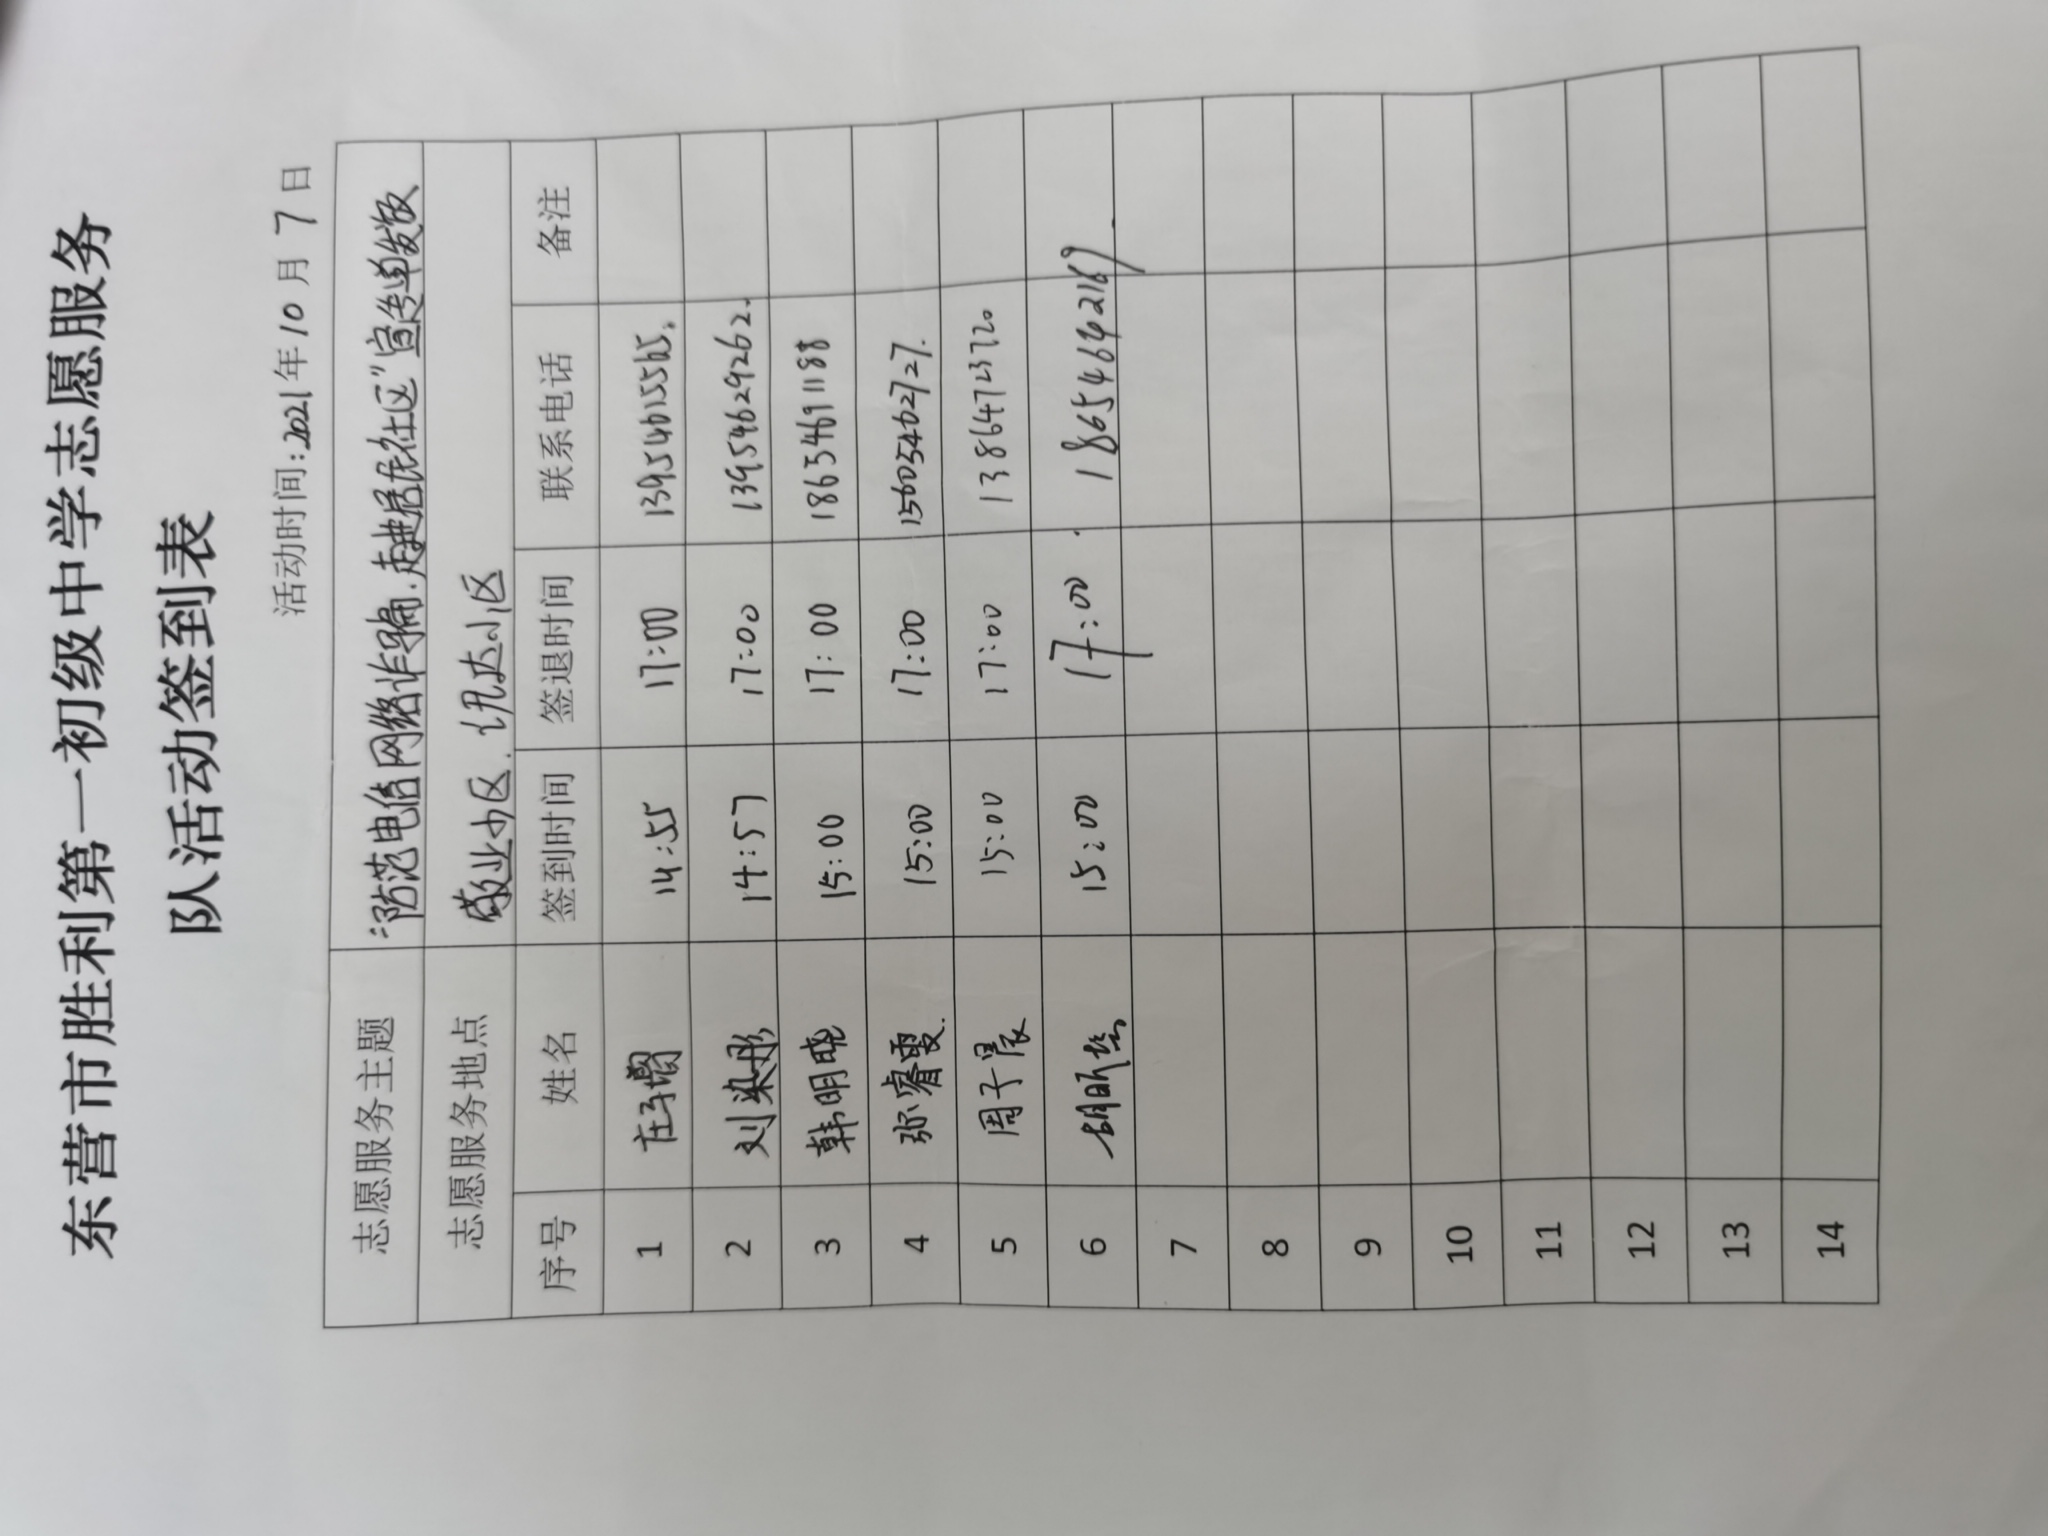 东营市胜利第一初级中学志愿服务
队活动签到表
活动时间:2021年10月7日
志愿服务主题 “防范电信网络诈骗.走进居民社区”宣传单发放
志愿服务地点 敬业小区.讯达小区
序号 姓名 签到时间 签退时间 联系电话 备注
1 14:55 17:00 13954615565.
2 刘染彤 14:57 17:00 13954629262.
3 韩明晓 15:00 17:00 18654691188
4 张睿雯. 15:00 17:00 15605462727.
5 周子晨 15:00 17:00 13864723720
6 15:00 17:00. 18654642169.
7
8
9
10
11
12
13
14